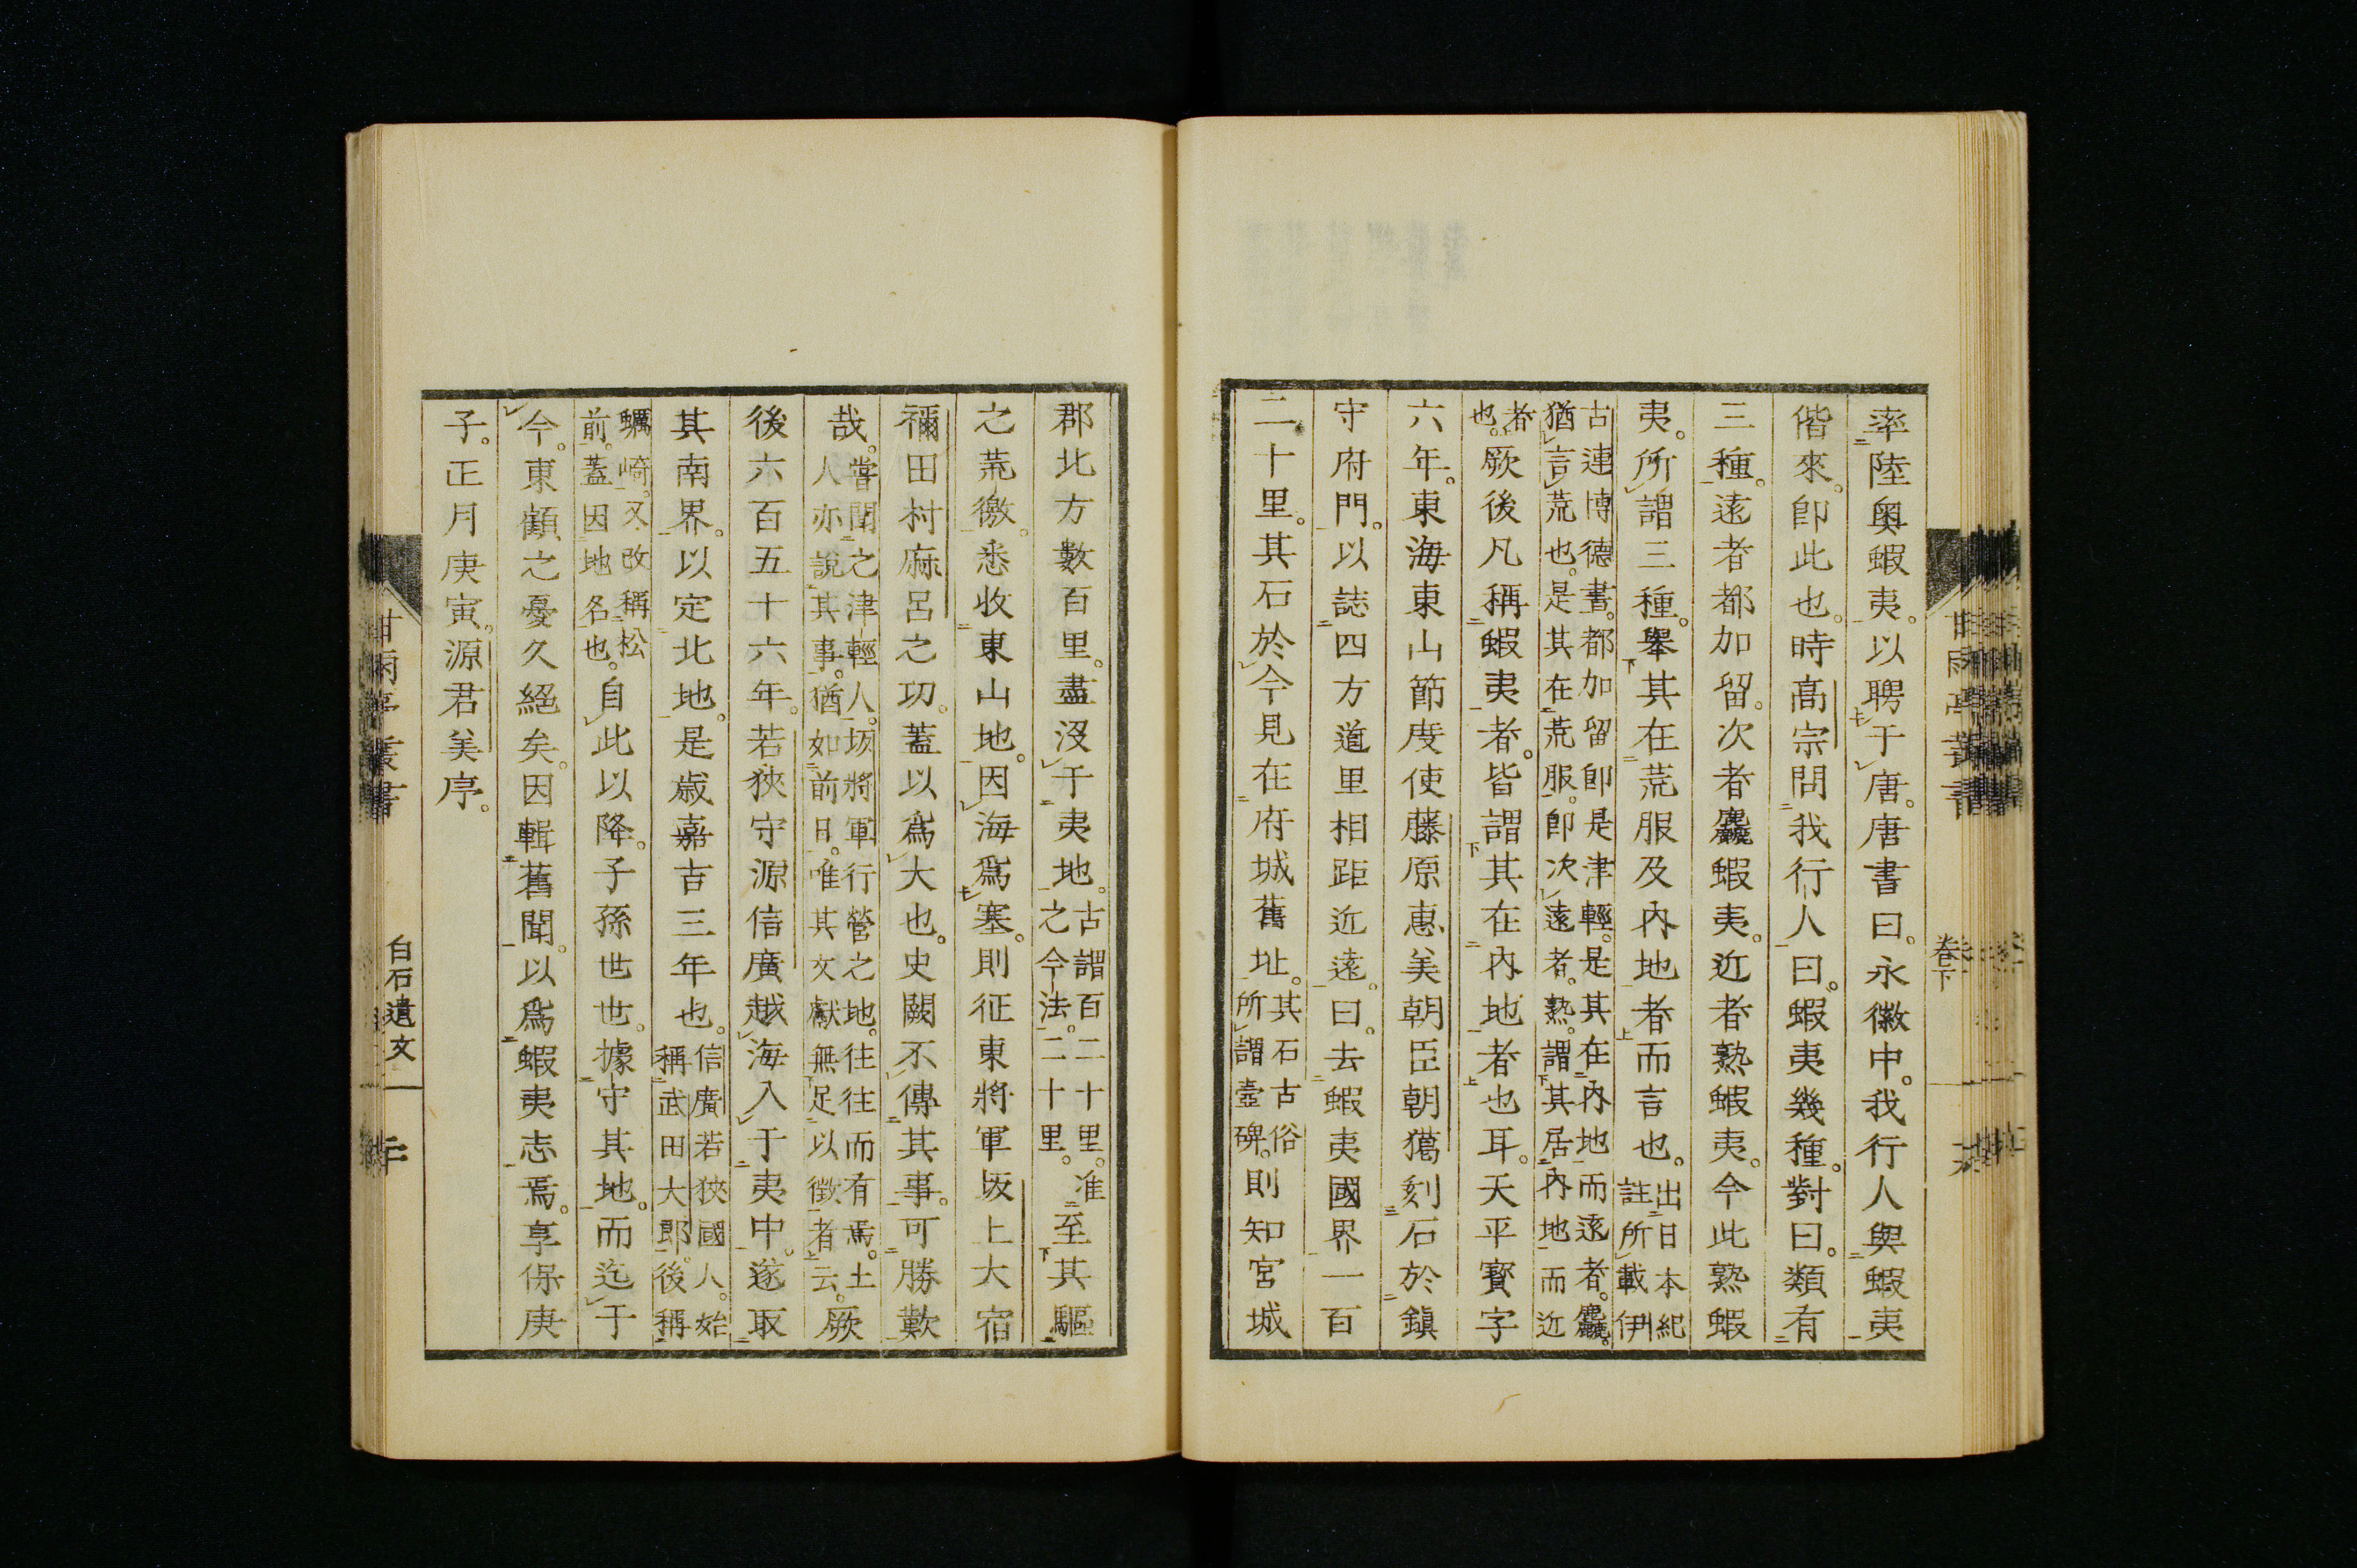 率陸奥蝦夷。以聘于唐。唐書曰。永徽中。我行人與蝦夷
偕來。卽此也。時高宗問我行人曰。蝦夷幾種。對曰。類有
三種。遠者都加留。次者麤蝦夷。近者熟蝦夷。今此熟蝦
夷。所謂三種。舉其在荒服及内地者而言也。出日本紀註所載伊
古連博德書。都加留卽是津輕。是其在内地而遠者。麤。
猶言荒也。是其在荒服。卽次遠者。熟。謂其居内地而近
者也。厥後凡稱蝦夷者。皆謂其在内地者也耳。天平寳字
六年。東海東山節度使藤原惠美朝臣朝獦刻石於鎮
守府門。以誌四方道里相距近遠。曰。去蝦夷國界一百
二十里。其石於今見在府城舊址。其石古俗所謂壷碑。則知宮城
郡北方數百里。盡沒于夷地。古謂百二十里。准之今法。二十里。至其驅
之荒徼。悉收東山地。因海爲塞。則征東將軍坂上大宿
禰田村麻呂之功。蓋以爲大也。史闕不傳其事。可勝歎
哉。嘗聞之津輕人。坂將軍行營之地。往往而有焉。土人亦說其事。猶如前日。唯其文獻無足以徵者云。厥
後六百五十六年。若狹守源信廣越海入于夷中。遂取
其南界。以定北地。是歲嘉吉三年也。信廣若狹國人。始稱武田大郎。後稱
蠣崎。又改稱松前。蓋因地名也。自此以降。子孫世世。據守其地。而迄于
今。東顧之憂久絕矣。因輯舊聞。以爲蝦夷志焉。享保庚
子。正月庚寅。源君美序。
甘雨亭叢書
白石遺文
卷下